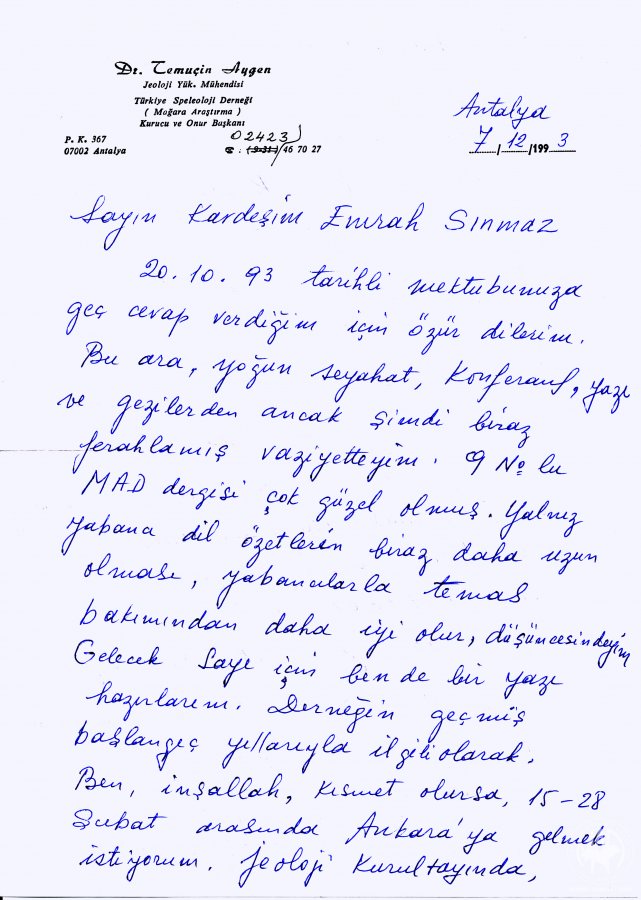 Dr. Temuçin Aygen
Jeoloji Yük. Mühendisi
Türkiye Speleoloji Derneği
( Mağara Araştırma )
Kurucu ve Onur Başkanı
P. K. 367
07002 Antalya
02423
☎ : (9-31) 46 70 27
Antalya
7/12/1993
Sayın Kardeşim Emrah Sınmaz
20.10.93 tarihli mektubunuza
geç cevap verdiğim için özür dilerim.
Bu ara, yoğun seyahat, Konferans, yazı
ve gezilerden ancak şimdi biraz
ferahlamış vaziyetteyim. 9 No lu
MAD dergisi çok güzel olmuş. Yalnız
yabancı dil özetlerin biraz daha uzun
olması, yabancılarla temas
bakımından daha iyi olur, düşüncesindeyim
Gelecek Sayı için ben de bir yazı
hazırlarım. Derneğin geçmiş
başlangıç yıllarıyla ilgili olarak.
Ben, inşallah, kısmet olursa, 15-28
Şubat arasında Ankara'ya gelmek
istiyorum. Jeoloji Kurultayında,